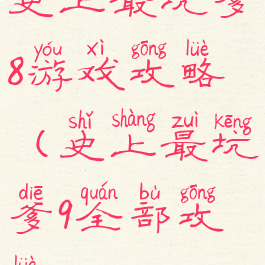 史上最坑爹
yóu xì gōng lüè
8游戏攻略
shǐ shàng zuì kēng
(史上最坑
diē quán bù gōng
爹9全部攻
lüè